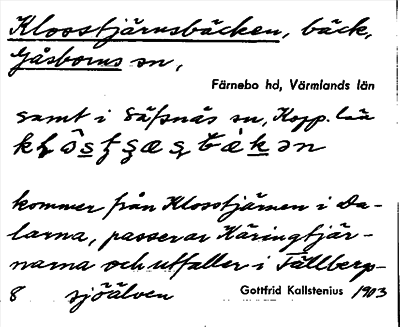 Klosstjärnsbäcken, bäck,
Gåsborns sn,
Färnebo hd, Värmlands län
samt i Säfsnäs sn, Kopp. län
kommer från Klosstjärnen i Da-
larna, passerar Häringtjär-
narna och utfaller i Fällberg-
8 sjöälven Gottfrid Kallstenius 1903